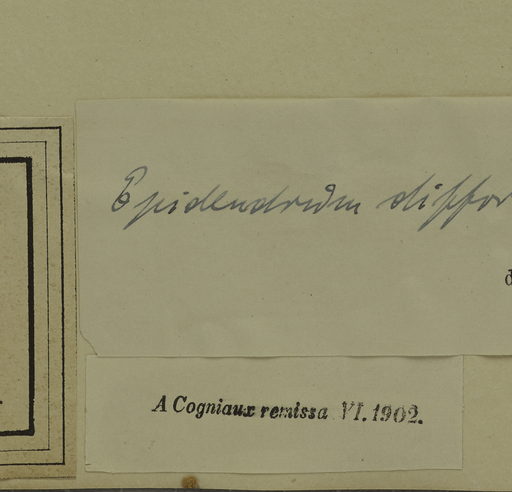 Epidendrum diffor
d
A Cogniaux remissa VI. 1902.